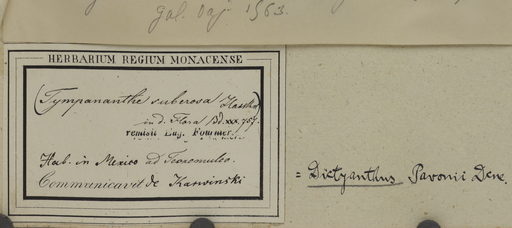 gal. Daj. 1563.
HERBARIUM REGIUM MONACENSE
(Tympananthe suberosa Hasskl)
in d. Flora Bd. xxx. 757.
remisit Eug. Fournier
Hab. in Mexico ad
Communicavit de Karwinski
= Dictyanthus Pavonii Dcne.